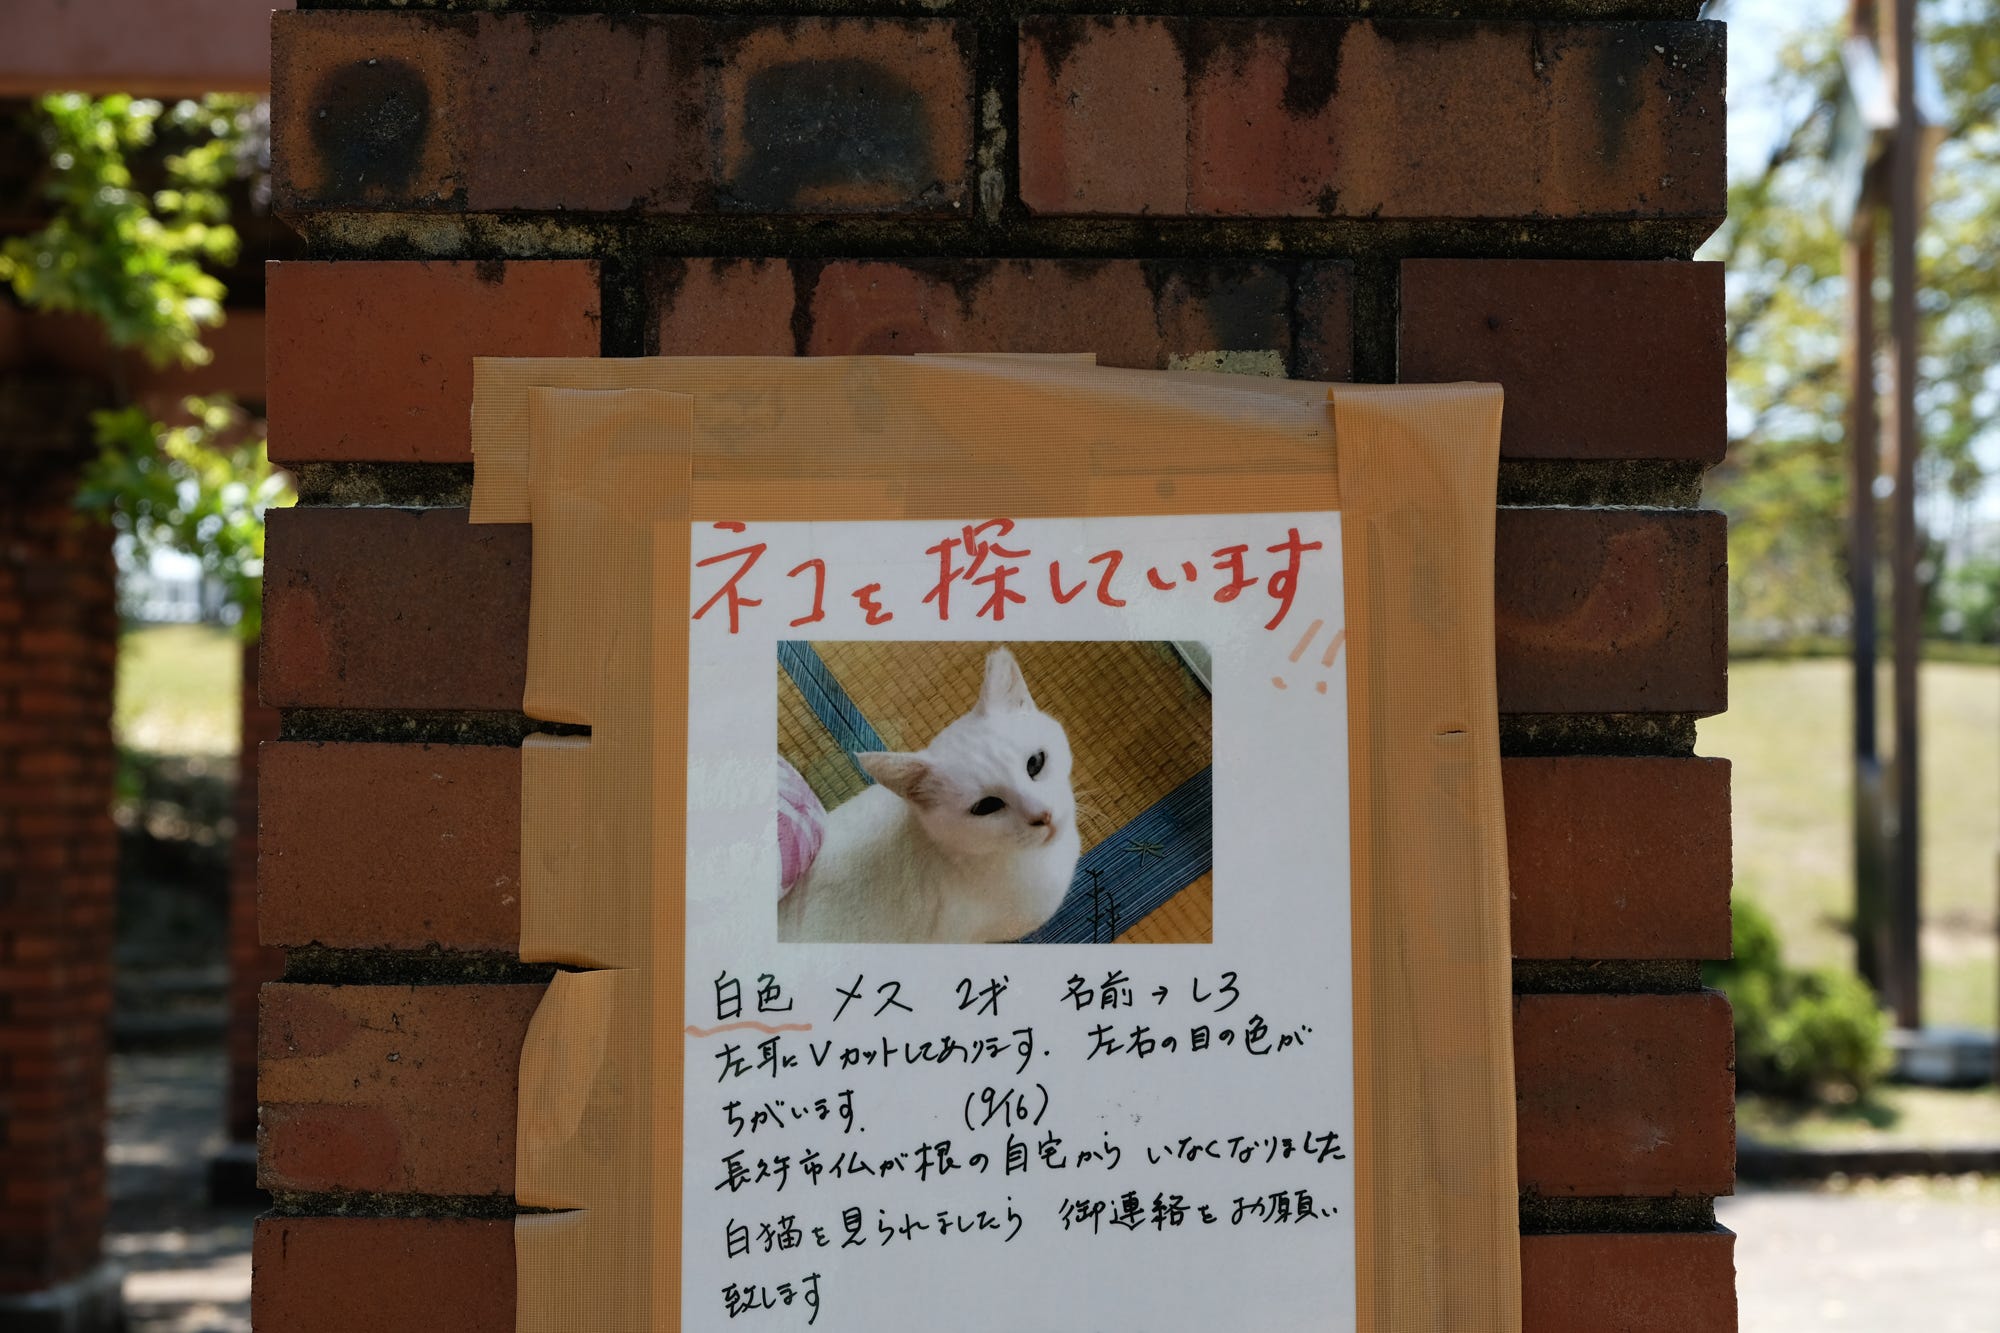 ネコを探しています!!
白色 メス 2才 名前→しろ
左耳にVカットしてあります. 左右の目の色が
ちがいます. (9/16)
長久手市仏が根の自宅から いなくなりました
白猫を見られましたら 御連絡をお願い
致します